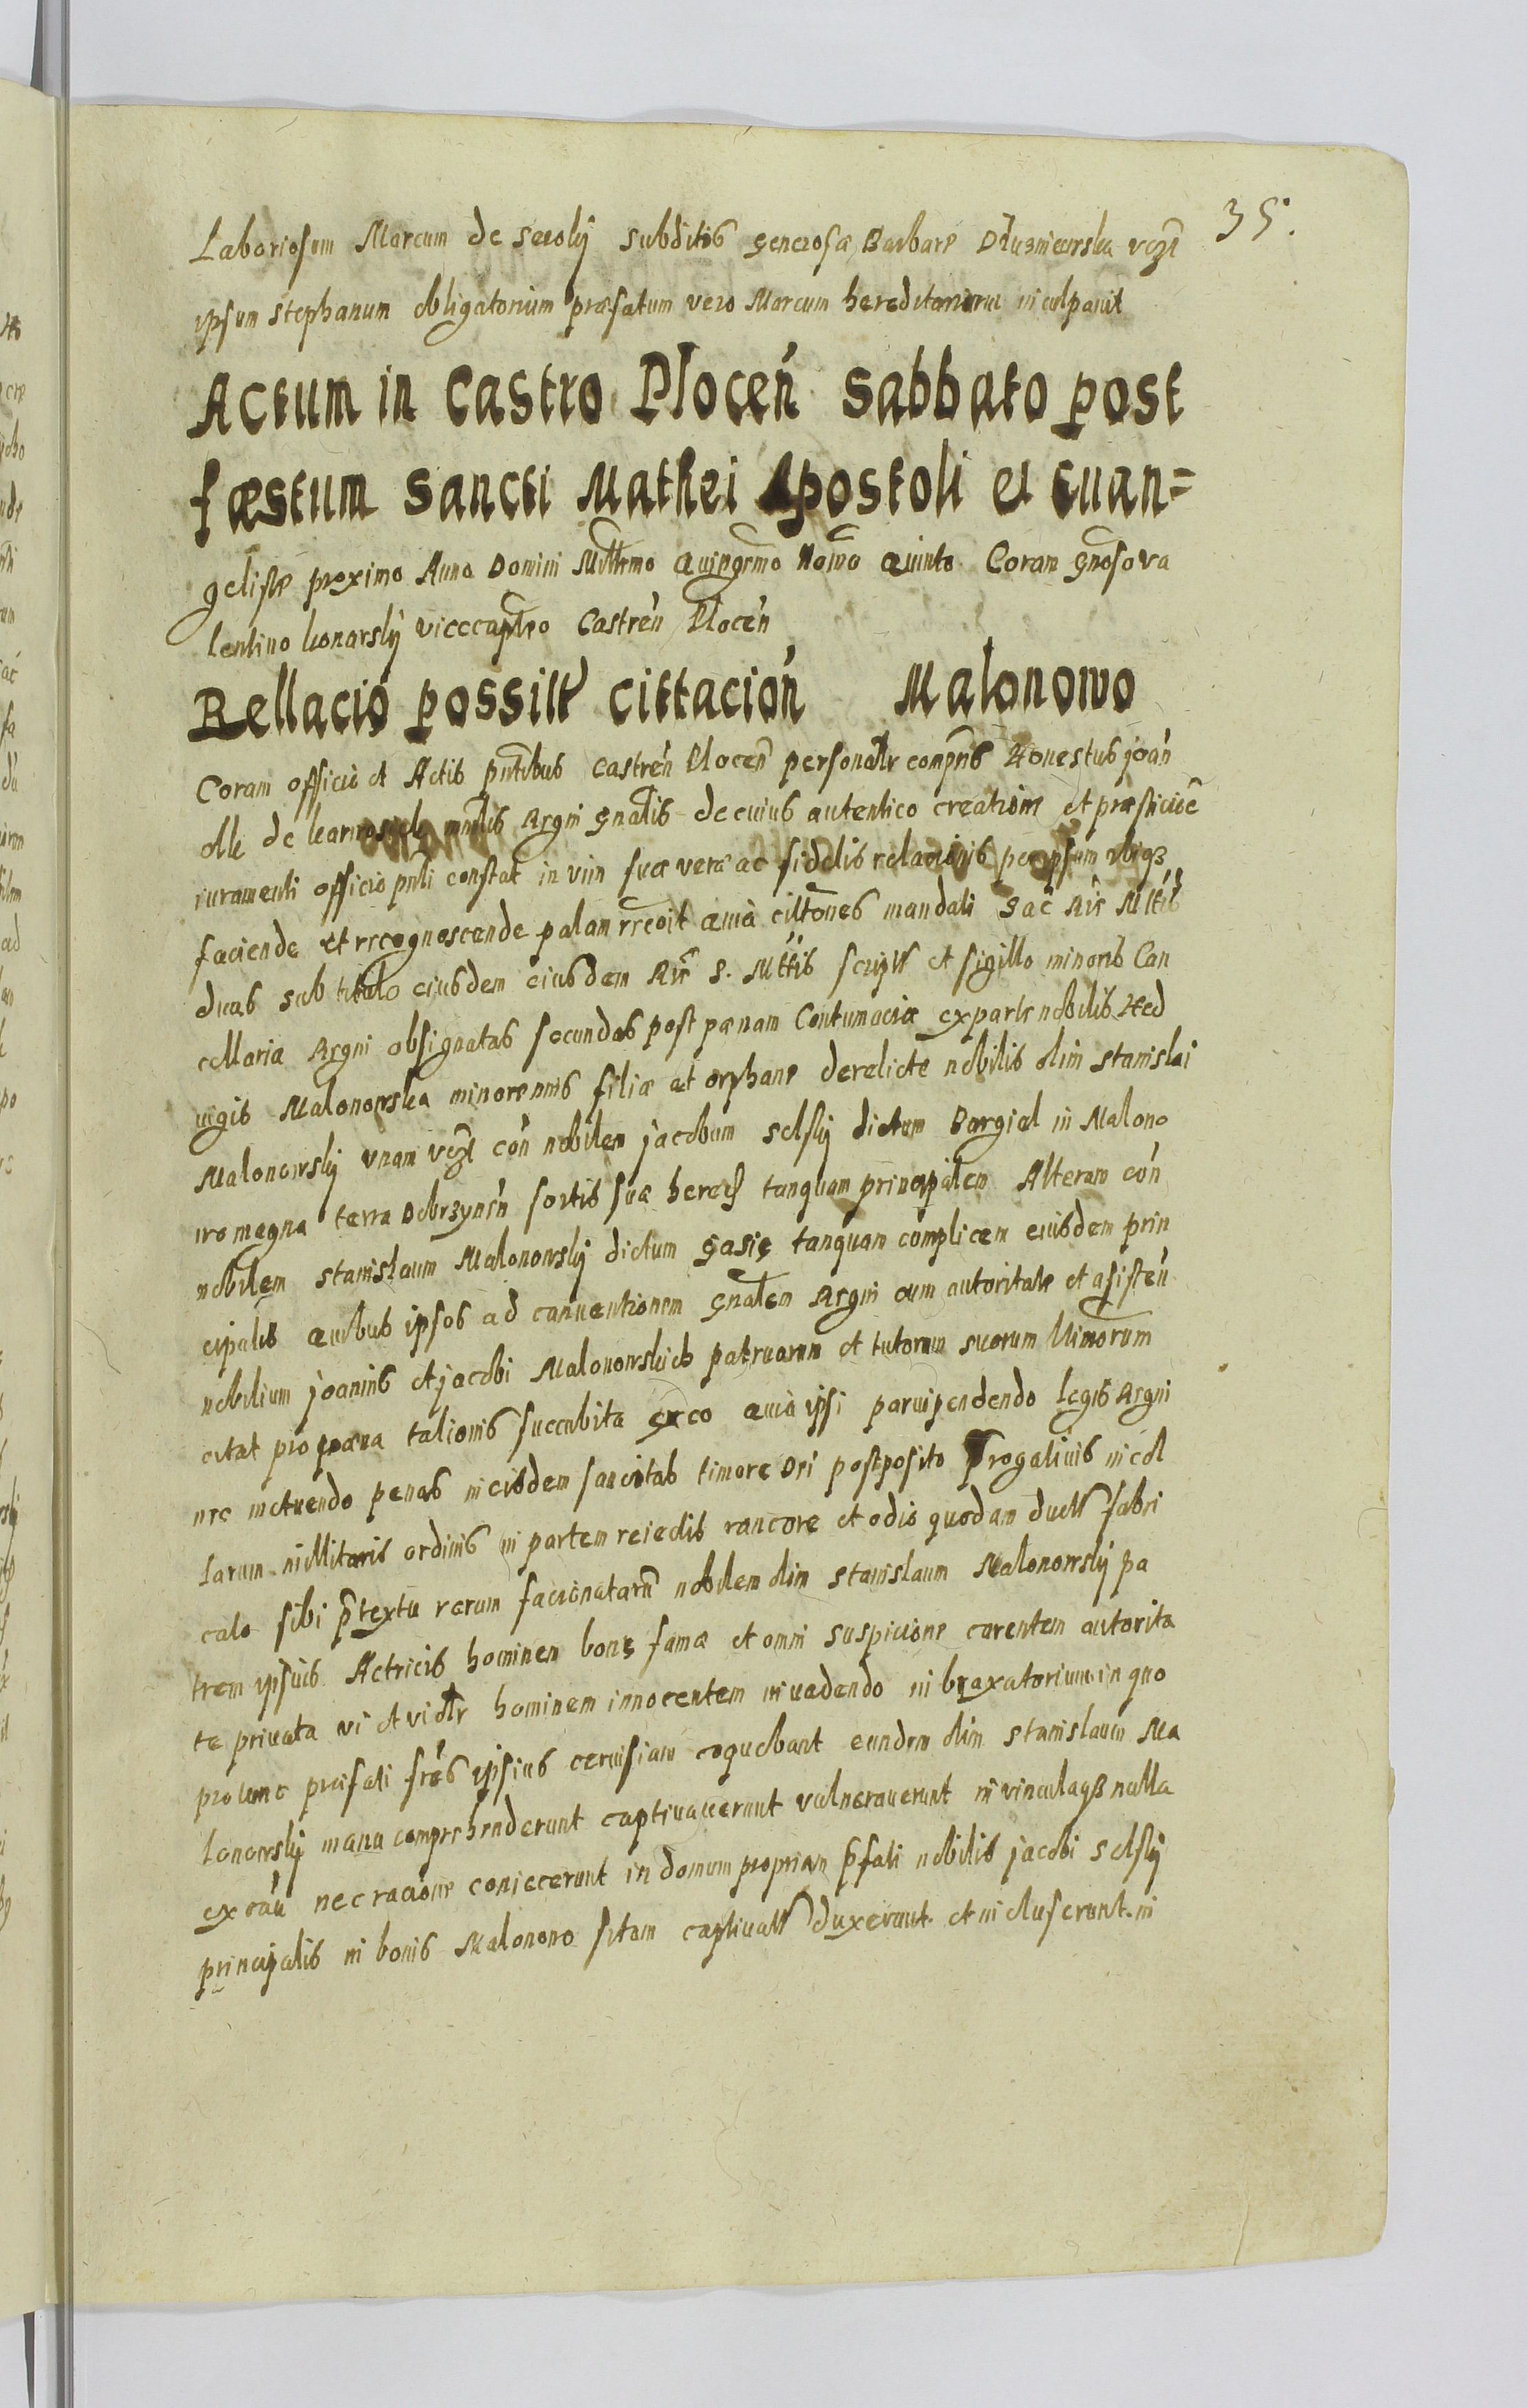 35.
Laboriosum Marcum de Secoly subditis generosæ Barbare Dłuzniewska
ipsum Stephanum obligatorium præfatum vero Marcum hereditarium inculpavit
Actum in Castro Plocen̄ Sabbato post
fæstum Sancti Mathei Apostoli et Euan=
gelistæ proximo Anno Domini Quinto Coram
lentino konarsky vicecaptneo Castren̄ Plocen̄
Rellacio possilt cittacion̄ Malonowo
Coram officio et Actis pn̄tibus castren̄ Plocen̄ personalr compn̄s Honestus joan̄
olle de Regni gnālis de cuius autentico creatione et præsticiōe
iuramenti officio pnti constat in vim suæ veræ ac fidelis relacionis per ipsum
faciende et recognoscende palam quia cittōnes mandati Sac̄
duas sub titulo eiusdem eiusdem S. Mttis scriptt et sigillo minoris Can
cellaria Regni obsignatas secundas post pænam Contumaciæ ex parte nobilis Hed
uigis Malonowska minorennis filiæ et orphane derelicte nobilis olim Stanislai
Malonowsky unam con̄ nobilem jacobum Selsky dictum Bargiel in Malono
wo magna terra Dobrzynsn̄ sortis suæ tanquam principalem Alteram con̄
nobilem Stanislaum Malonowsky dictum Gasię tanquam complicem eiusdem prin
cipalis quibus ipsos ad conuentionem gnālem Regni cum autoritate et asisten̄
nobilium joannis et jacobi Malonowskich patruorum et tutorum suorum Minorum
citat pro pæna talionis succubita quia ipsi paruipendendo legis Regni
nec metuendo penas in eisdem sancitas timore Dei postposito Progatiuis incol
larum millitaris ordinis in partem reiectis rancore et odio quodam ductt fabri
cato sibi p̄textu rerum nobilem olim Stanislaum Malonowsky pa
trem ipsius Actricis hominem bonę famæ et omni suspicione carentem autorita
te priuata vi et viōltr hominem innocentem inuadendo in braxatorium in quo
protunc præfati frēs ipsius ceruisiam coquebant eundem olim Stanislaum Ma
lonowsky manu comprehenderunt captiuauerunt vulnerauerunt in vinculaqз nulla
ex cāu nec racione coniecerunt in domum propriam p̄fati nobilis jacobi Selsky
principalis in bonis Malonono sitam captiuatt duxerunt et incluserunt in